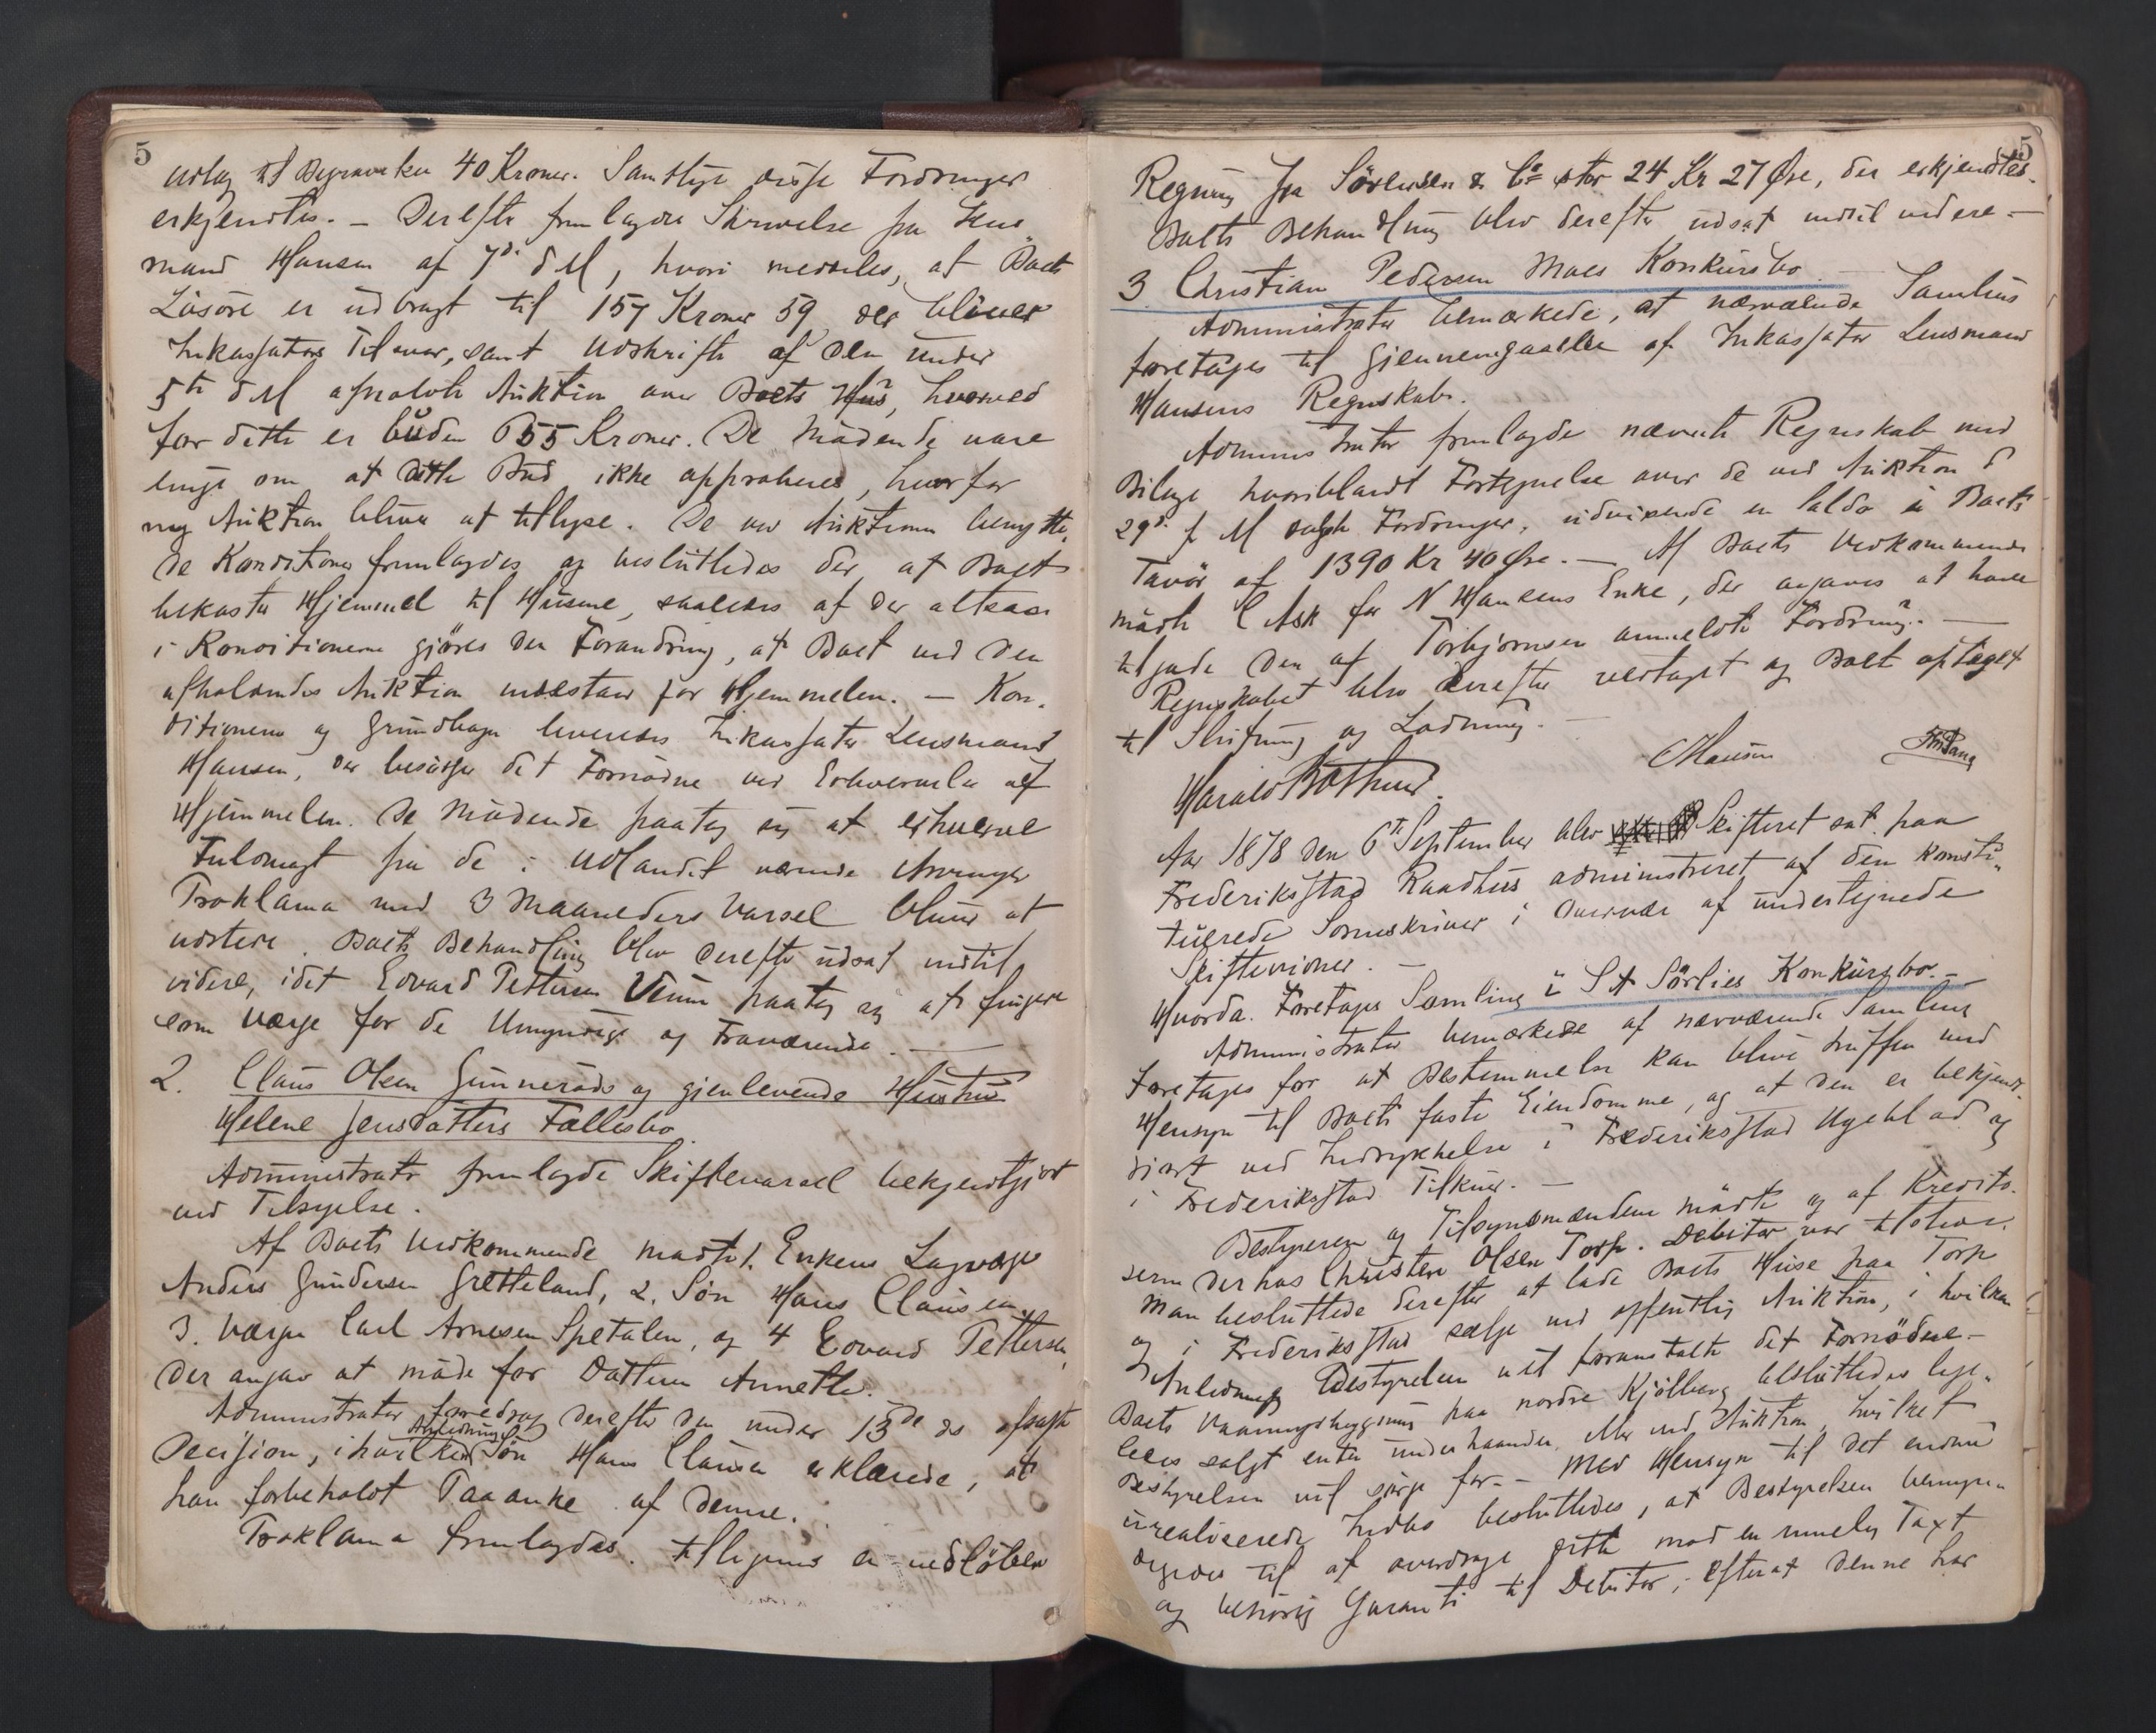 5
Udlæg til Begravelsen 40 Kroner. Samtlige disse Fordringer
erkjendtes. – Derefter fremlagdes Skrivelse fra Lens-
mand Hansen af 7de d M, hvori meddeles, at Boets
Lösöre er udbragt til 157 Kroner 59, der bliver
Inkassators Tilsvar, samt Udskrift af den under
5te d M afholdte Auktion over Boets Hus, hvorved
for dette er buden 655 Kroner. De Mödende vare
enige om at dette Bud ikke approberes, hvorfor
ny Auktion bliver at tillyse. De ved Auktionen benytte-
de Konditioner fremlagdes og besluttedes det at Boet
bekoster Hjemmel til Husene, saaledes at der altsaa
i Konditionerne gjöres den Forandring, at Boet ved den
afholdendes Auktion indestaar for Hjemmelen. – Kon-
ditionerne og Grundlagen leveredes Inkassator Lensmand
Hansen, der besörger det Fornödne ved Erhvervelse af
Hjemmelen. De Mödende paatog sig at erhverve
Fuldmagt fra de i Udlandet værende Arvinger
Proklama med 3 Maaneders Varsel bliver at
udstede. Boets Behandling blev derefter udsat indtil
videre, idet Edvard Pettersen Veum paatog sig at fungere
som Værge for de Umyndige og Fraværende. –
2. Claus Olsen Gunneröds og gjenlevende Hustru
Helene Jensdatters Fællesbo.
Administrator fremlagde Skiftevarsel bekjendtgjort
ved Tilsigelse.
Af Boets Vedkommende mödte 1. Enkens Lagværge
Anders Gundersen Gretteland, 2. Sön Hans Clausen
3. Værge Carl Arnesen Spetalen, og 4 Edvard Pettersen,
der angav at möde for Datteren Annette.
Administrator foredrog derefter den under 13de ds afsagte
Decision, i hvilken Anledning Sön Hans Clausen erklærede, at
han forbeholdt Paaanke af denne.
Proklama fremlagdes. tilligemed en nedlöben
5
Regning fra Sörensen & Co stor 24 Kr 27 Öre, der erkjendtes.
Boets Behandling blev derefter udsat indtil videre. –
3 Christian Pedersen Moes Konkursbo. –
Administrator bemærkede, at nærværende Samling
foretages til Gjennemgaaelse af Inkassator Lensmand
Hansens Regnskab.
Administrator fremlagde nævnte Regnskab med
Bilage hvoriblandt Fortegnelse over de ved Auktion d
29de f M solgte Fordringer, udvisende en Saldo i Boets
Favör af 1390 Kr 40 Öre. – Af Boets Vedkommende
mödte C Ask for N Hansens Enke, der angaves at have
tilgode den af Torbjörnsen anmeldte Fordring. –
Regnskabet blev derefter vedtaget og Boet optaget
til Slutning og Lodning. –
CHansen
Harald Bothner.
Aar 1878 den 6te September blev Skifteret sat paa
Frederiksstad Raadhus administreret af den konsti-
tuerede Sorenskriver i Overvær af undertegnede
Skiftevidner. –
Hvorda. Foretages Samling i S A Sörlies Konkursbo. –
Administrator bemærkede at nærværende Samling
foretages for at Bestemmelse kan blive truffen med
Hensyn til Boets faste Eiendomme, og at den er bekjendt-
gjort ved Indrykkelse i Frederiksstad Ugeblad og
i Frederiksstad Tilskuer. –
Bestyreren og Tilsynsmændene mödte og af Kredito-
rerne derhos Christen Olsen Torp. Debitor var tilstede.
Man besluttede derefter at lade Boets Huse paa Torp
og i Frederiksstad sælge ved offentlig Auktion, i hvilken
Anledning Bestyrelsen vil foranstalte det Fornödne –
Boets Vaaningsbygning paa nordre Kjölberg besluttedes lige-
ledes solgt enten underhaanden eller ved Auktion, hvilket
Bestyrelsen vil sörge for. – Med Hensyn til det endnu
urealiserede Indbo besluttedes, at Bestyrelsen bemyn-
digedes til at overdrage dette mod en rimelig Taxt
og behörig Garanti til Debitor, efterat denne har